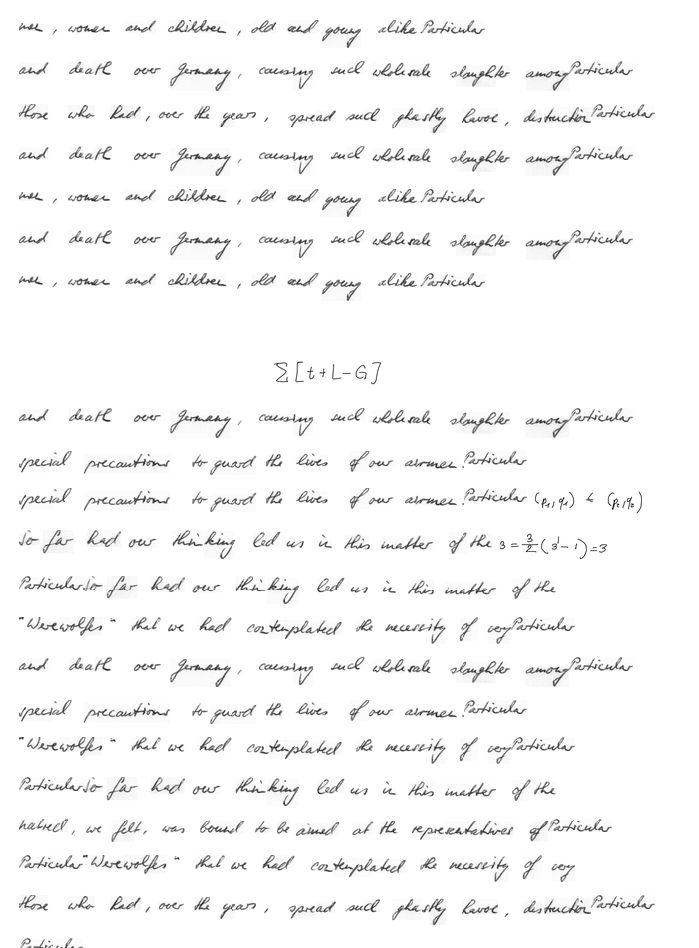 men, women and children, old and young alike Particular
and death over Germany, causing such wholesale slaughter among Particular
those who had, over the years, spread such ghastly havoc, destruction Particular
and death over Germany, causing such wholesale slaughter among Particular
men, women and children, old and young alike Particular
and death over Germany, causing such wholesale slaughter among Particular
men, women and children, old and young alike Particular
∑[t+L-G]
and death over Germany, causing such wholesale slaughter among Particular
special precautions to guard the lives of our airmen. Particular
special precautions to guard the lives of our airmen. Particular (p₁, q₁) ≤ (p₂, q₂)
So far had our thinking led us in this matter of the 3 = 3/2 (3¹ - 1) = 3
Particular So far had our thinking led us in this matter of the
"Werewolfes" that we had contemplated the necessity of very Particular
and death over Germany, causing such wholesale slaughter among Particular
special precautions to guard the lives of our airmen. Particular
"Werewolfes" that we had contemplated the necessity of very Particular
Particular So far had our thinking led us in this matter of the
hatred, we felt, was bound to be aimed at the representatives of Particular
Particular "Werewolfes" that we had contemplated the necessity of very
those who had, over the years, spread such ghastly havoc, destruction Particular
Particular